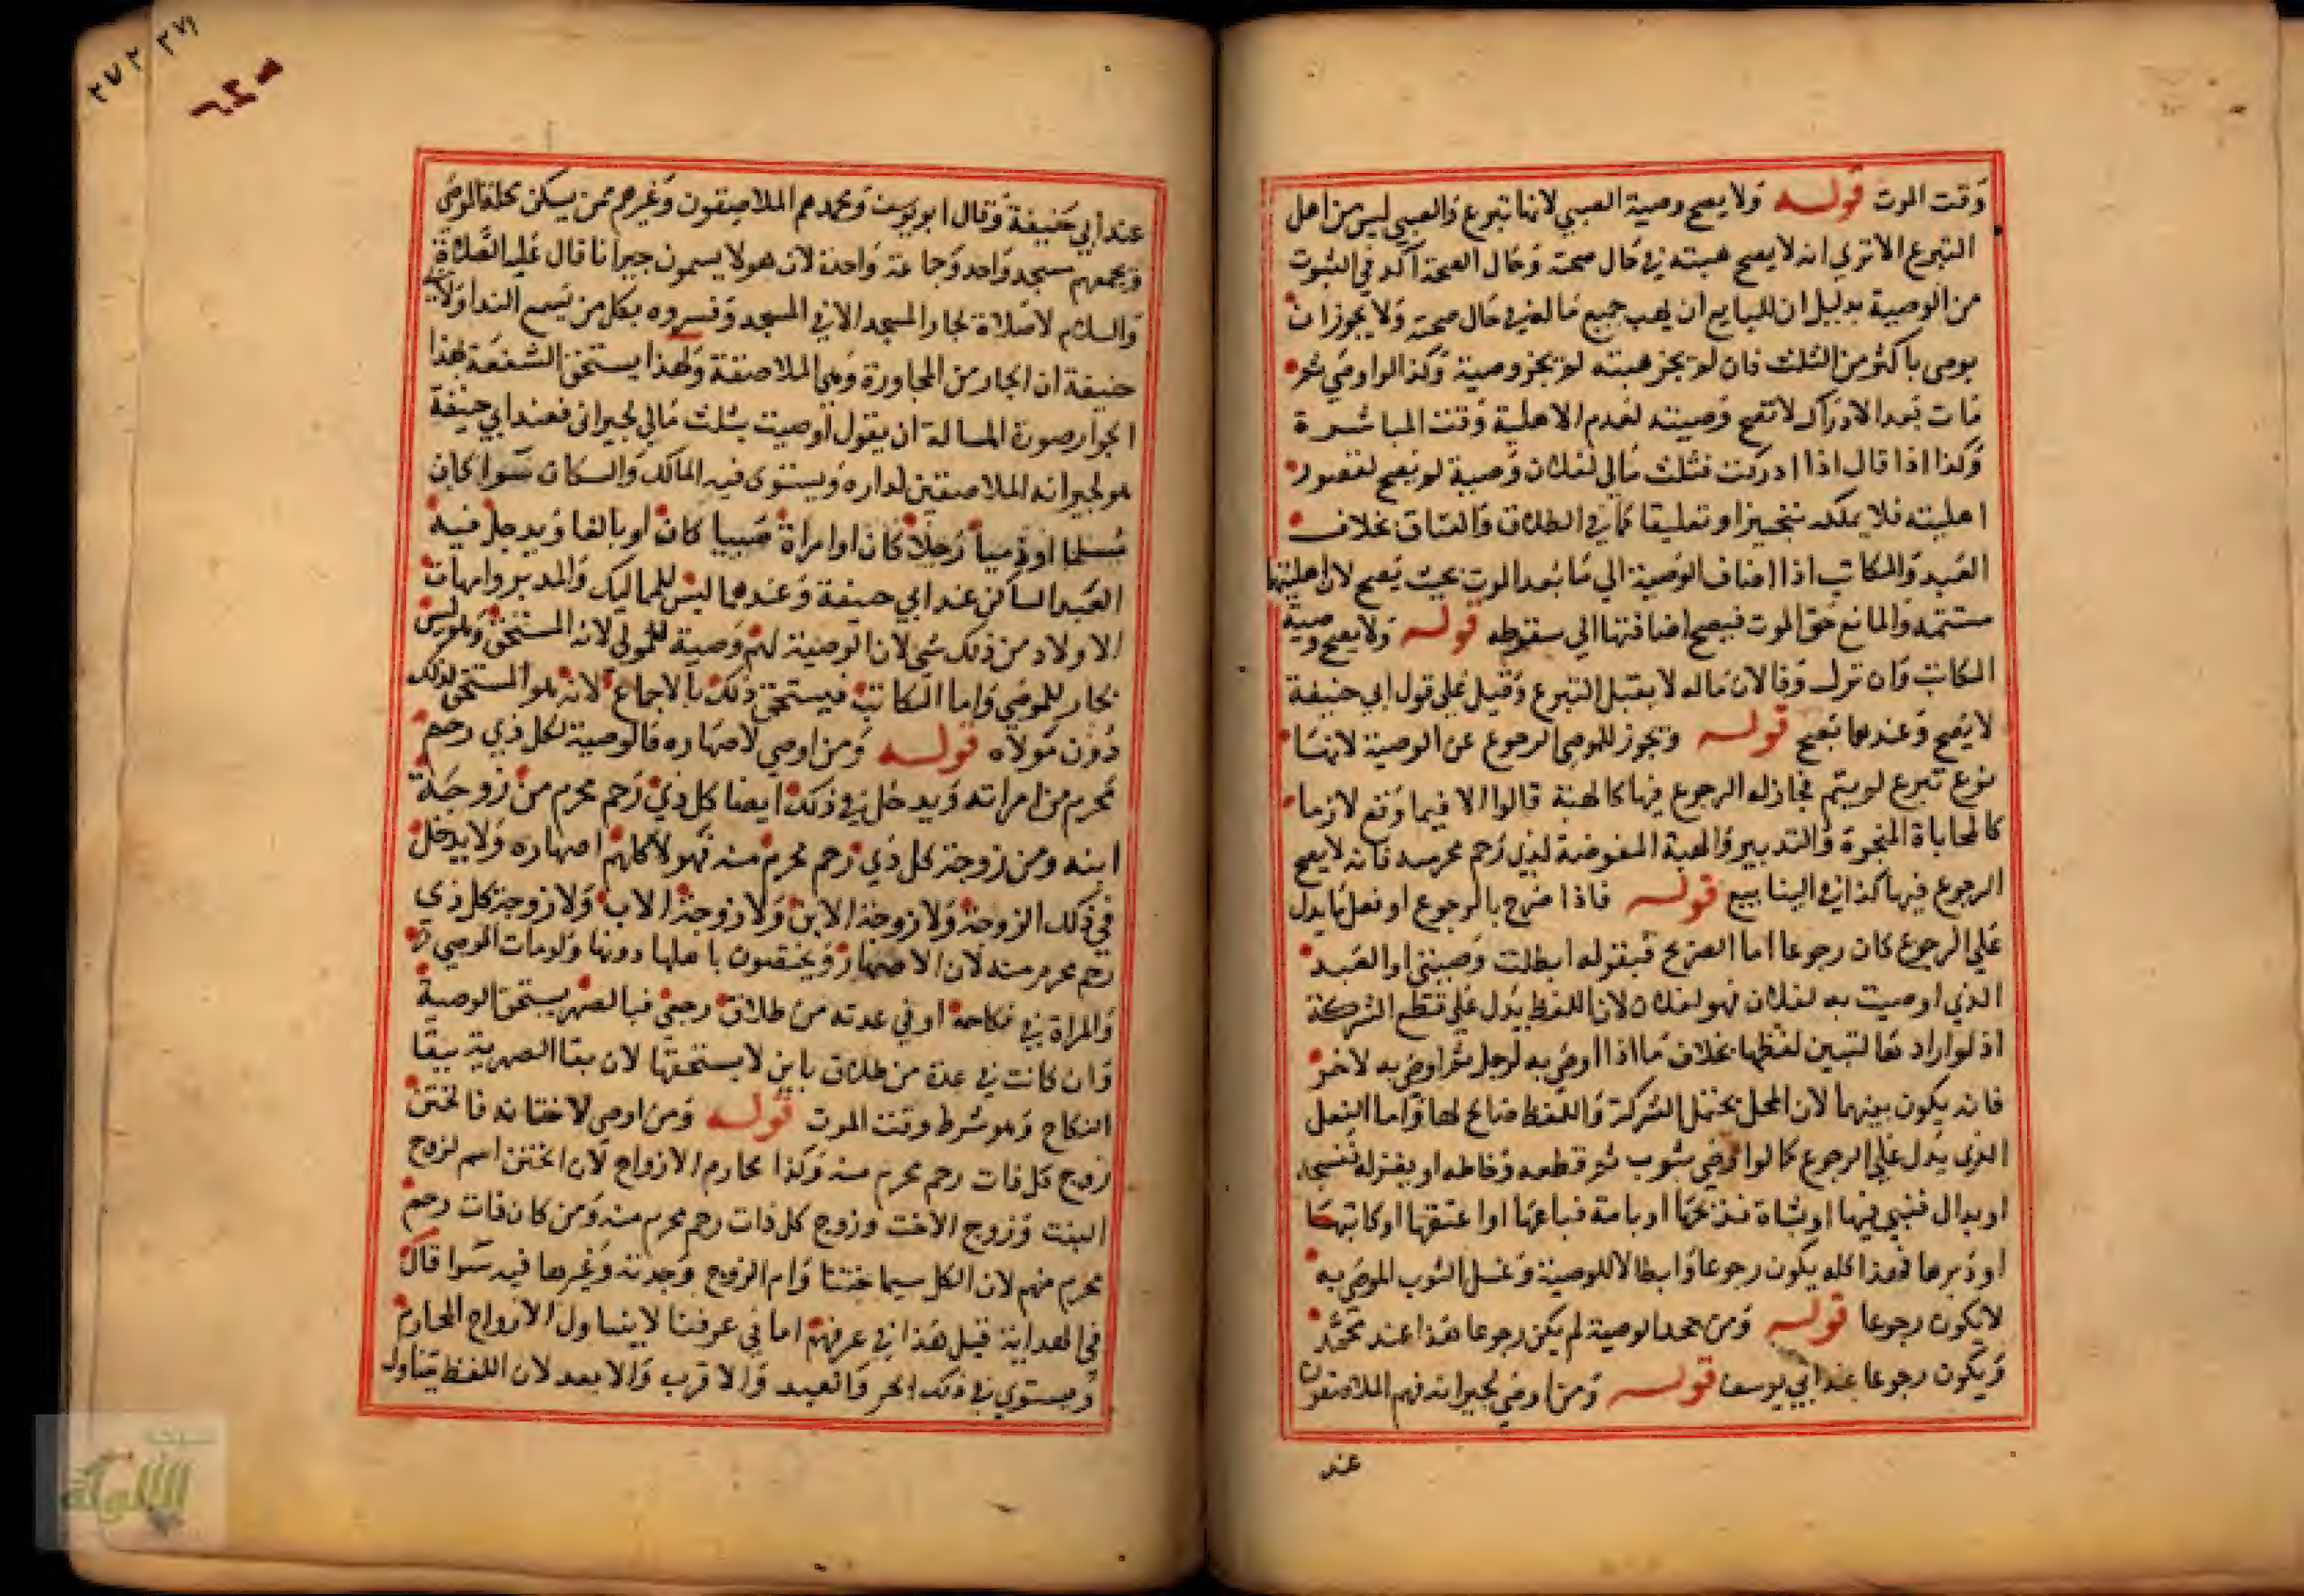 وقت الموت قوله ولا يصح وصية الصبي لانها تبرع والصبي ليس من اهل
التبرع الا تري انه لا يصح هبته في حال صحته وحال الصحة آكد في الثبوت
من الوصية بدليل ان للبايع ان يهب جميع ماله في حال صحته ولا يجوز ان
يوصى باكثر من الثلث فان لم يجز هبته لم يجز وصية وكذا لو اوصي ثم
مات بعد الادراك لا تصح وصيته لعدم الاهلية وقت المباشرة
وكذا اذا قال اذا ادركت فثلث مالي لفلان وصية لم يصح لقصور
اهليته فلا يملكه تنجيزا وتعليقا كما في الطلاق والعتاق بخلاف
العبد والمكاتب اذا اضاف الوصية الي ما بعد الموت بحيث يصح لان اهليتها
مستتمة والمانع حق الموت فيصح اضافتها الي سقوطه قوله ولا يصح وصية
المكاتب وان ترك وفا لان ماله لا يقبل التبرع وقيل علي قول ابي حنيفة
لا يصح وعندهما تصح قوله ويجوز للموصي الرجوع عن الوصية لانها
نوع تبرع لم يتم فجاز له الرجوع فيها كالهبة قالوا الا فيما وقع لازما
كالمحاباة المنجزة والتدبير والهبة المفوضة لذي رحم محرم منه فانه لا يصح
الرجوع فيها كذا في الينابيع قوله فاذا صرح بالرجوع او فعل ما يدل
علي الرجوع كان رجوعا اما الصريح فبقوله ابطلت وصيتي او العبد
الذي اوصيت به لفلان فهو لفلان لان اللفظ يدل علي قطع الشركة
اذ لو اراد لتبين لفظها بخلاف ما اذا اوصي به لرجل ثم اوصي به لاخر
فانه يكون بينهما لان المحل يحتمل الشركة واللفظ صالح لها واما الفعل
الذي يدل علي الرجوع كما لو اوصي بثوب ثم قطعه وخاطه او بغزله فنسجه
او بدار فبني فيها او بشاة فذبحها او بامة فباعها او اعتقها او كاتبها
او دبرها فهذا كله يكون رجوعا وابطالا للوصية وغسل الثوب الموصي به
لا يكون رجوعا قوله ومن جحد الوصية لم يكن رجوعا هذا عند محمد
ويكون رجوعا عند ابي يوسف قوله ومن اوصي لجيرانه فهم الملاصقون
عند
عند ابي حنيفة وقال ابو يوسف ومحمد هم الملاصقون وغيرهم ممن يسكن محلة الموصي
ويجمعهم مسجد واحد وجماعة واحدة لان هولا يسمون جيرانا قال عليه الصلاة
والسلام لا صلاة لجار المسجد الا في المسجد وفسروه بكل من يسمع الندا ولابي
حنيفة ان الجار من المجاورة وهي الملاصقة ولهذا يستحق الشفعة بهذا
الجوار صورة المسالة ان يقول اوصيت بثلث مالي لجيراني فعند ابي حنيفة
هو لجيرانه الملاصقين لداره ويستوي فيه المالك والسكان سوا كان
مسلما او ذميا رجلا كان او امراة صبيا كان او بالغا ويدخل فيه
العبد الساكن عند ابي حنيفة وعندهما ليس للمماليك والمدبر وامهات
الاولاد من ذلك شي لان الوصية لهم وصية للمولي لانه المستحق وهو ليس
بجار للموصي واما المكاتب فيستحق ذلك بالاجماع لانه هو المستحق لذلك
دون مولاه قوله ومن اوصي لاصهاره فالوصية لكل ذي رحم
محرم من امراته ويدخل في ذلك ايضا كل ذي رحم محرم من زوجة
ابنه ومن زوجة كل ذي رحم محرم منه فهولا كلهم اصهاره ولا يدخل
في ذلك الزوجة ولا زوجة الابن ولا زوجة الاب ولا زوجة كل ذي
رحم محرم منه لان الاصهار يختصون باهلها دونها ولو مات الموصي
والمراة في نكاحه او في عدته من طلاق رجعي فبالصهر يستحق الوصية
وان كانت في عدة من طلاق باين لا يستحقها لان بقا الصهرية ببقا
النكاح وهو شرط وقت الموت قوله ومن اوصي لاختانه فالختن
زوج كل ذات رحم محرم منه وكذا محارم الازواج لان الختن اسم لزوج
البنت وزوج الاخت وزوج كل ذات رحم محرم منه ومن كان ذات رحم
محرم منهم لان الكل سيما ختنا وام الزوج وجدته وغيرها فيه سوا قال
في الهداية قيل هذا في عرفهم اما في عرفنا لا يتناول الازواج المحارم
ويستوي في ذلك الحر والعبد والاقرب والابعد لان اللفظ يتناول